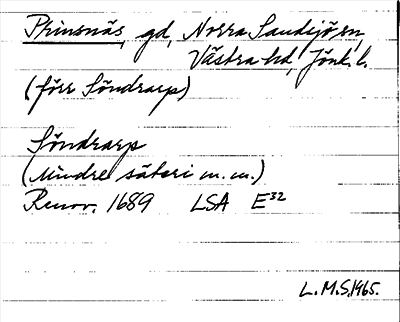 Prinsnäs, gd, Norra Sandsjö sn,
Västra hd, Jönk. l.
(förr Söndrarp)
Söndrarp
(Mindre säteri m.m.)
Renov. 1689 LSA E³²
L.M.S. 1965.